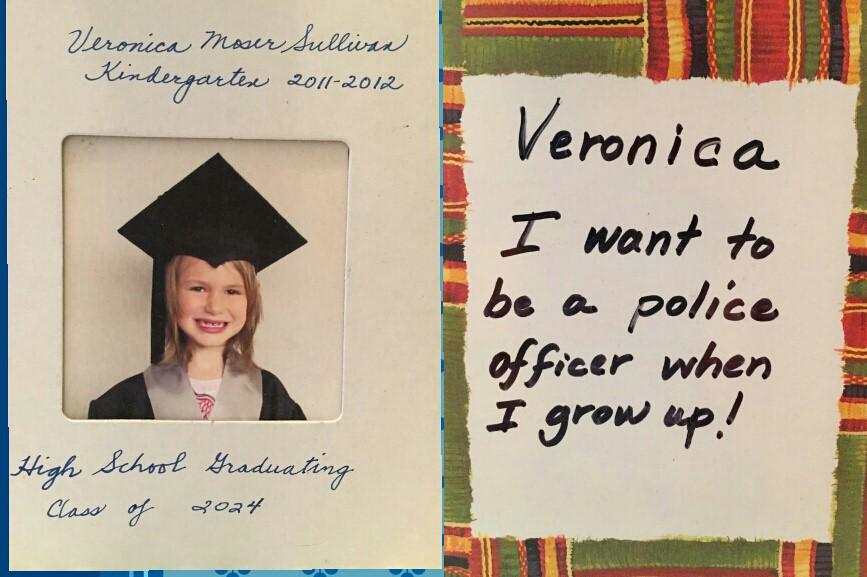 Veronica Moser Sullivan
Kindergarten 2011-2012
High School Graduating
Class of 2024
Veronica
I want to
be a police
officer when
I grow up!